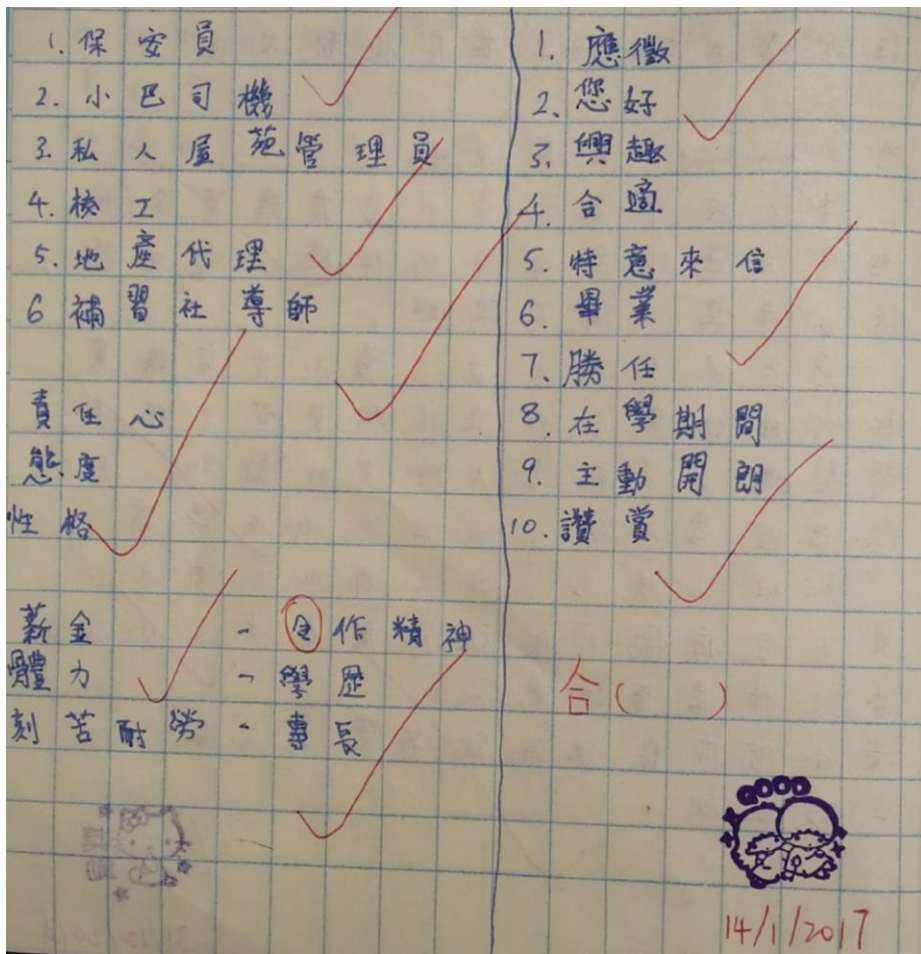 1. 保安員
2. 小巴司機
3. 私人屋苑管理員
4. 校工
5. 地產代理
6 補習社導師
責任心
態度
性格
薪金 - 合作精神
體力 - 學歷
刻苦耐勞 - 專長
1. 應徵
2. 您好
3. 興趣
4. 合適
5. 特意來信
6. 畢業
7. 勝任
8. 在學期間
9. 主動開朗
10. 讚賞
合( )
GOOD
14/1/2017